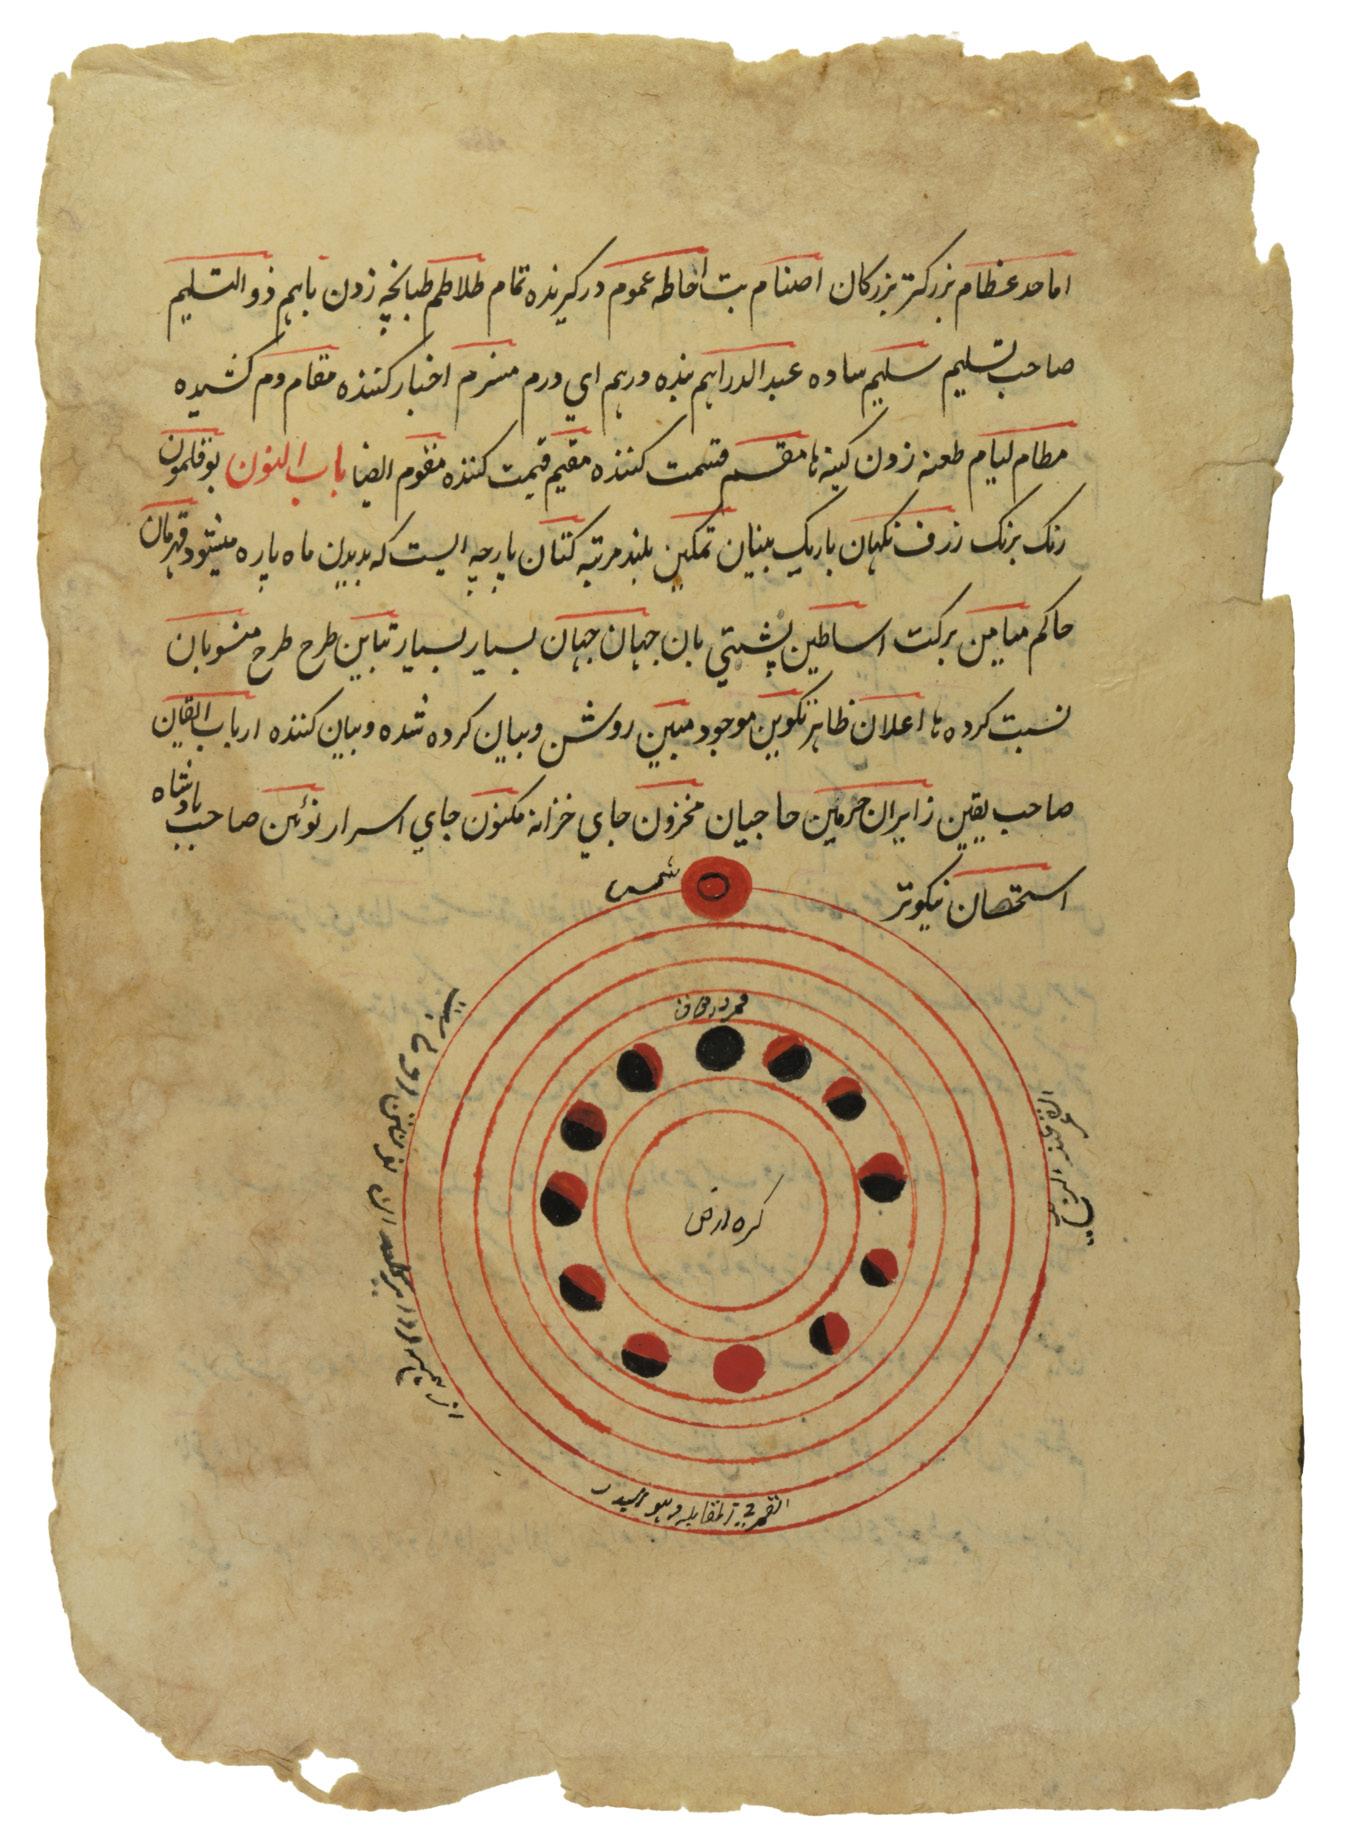 اماجد عظام بزرکتر بزرکان اصنام بت احاطه عموم درکیرنده تمام طلاطم طبانچه زدن باهم ذوالتسلیم
صاحب تسلیم سلیم ساده عبدالدراهم بنده درهم ای درم منحرم اخبار کننده مقام دم کشیده
مطام لیام طعنه زدن کینه ها مقسم قسمت کننده مقیم قیمت کننده مقوم ایضا باب النون بوقلمون
رنک برنک ژرف نکهان باریک بینان تمکین بلند مرتبه کتان پارچه ایست که بدیدن ماه پاره میشود قهرمان
حاکم میامین برکت اساطین پشتی بان جهان جهان بسیار بسیار تباین طرح طرح منسوبان
نسبت کرده ها اعلان ظاهر تکوین موجود مبین روشن و بیان کرده شده و بیان کننده ارباب ایقان
صاحب یقین زایران حرمین حاجیان مخزون جای خزانه مکنون جای اسرار نوئین صاحب پادشاه
استحصان نیکوتر
شمس
قمر در محاق
کره ارض
القمر فی المقابله و هو البدر